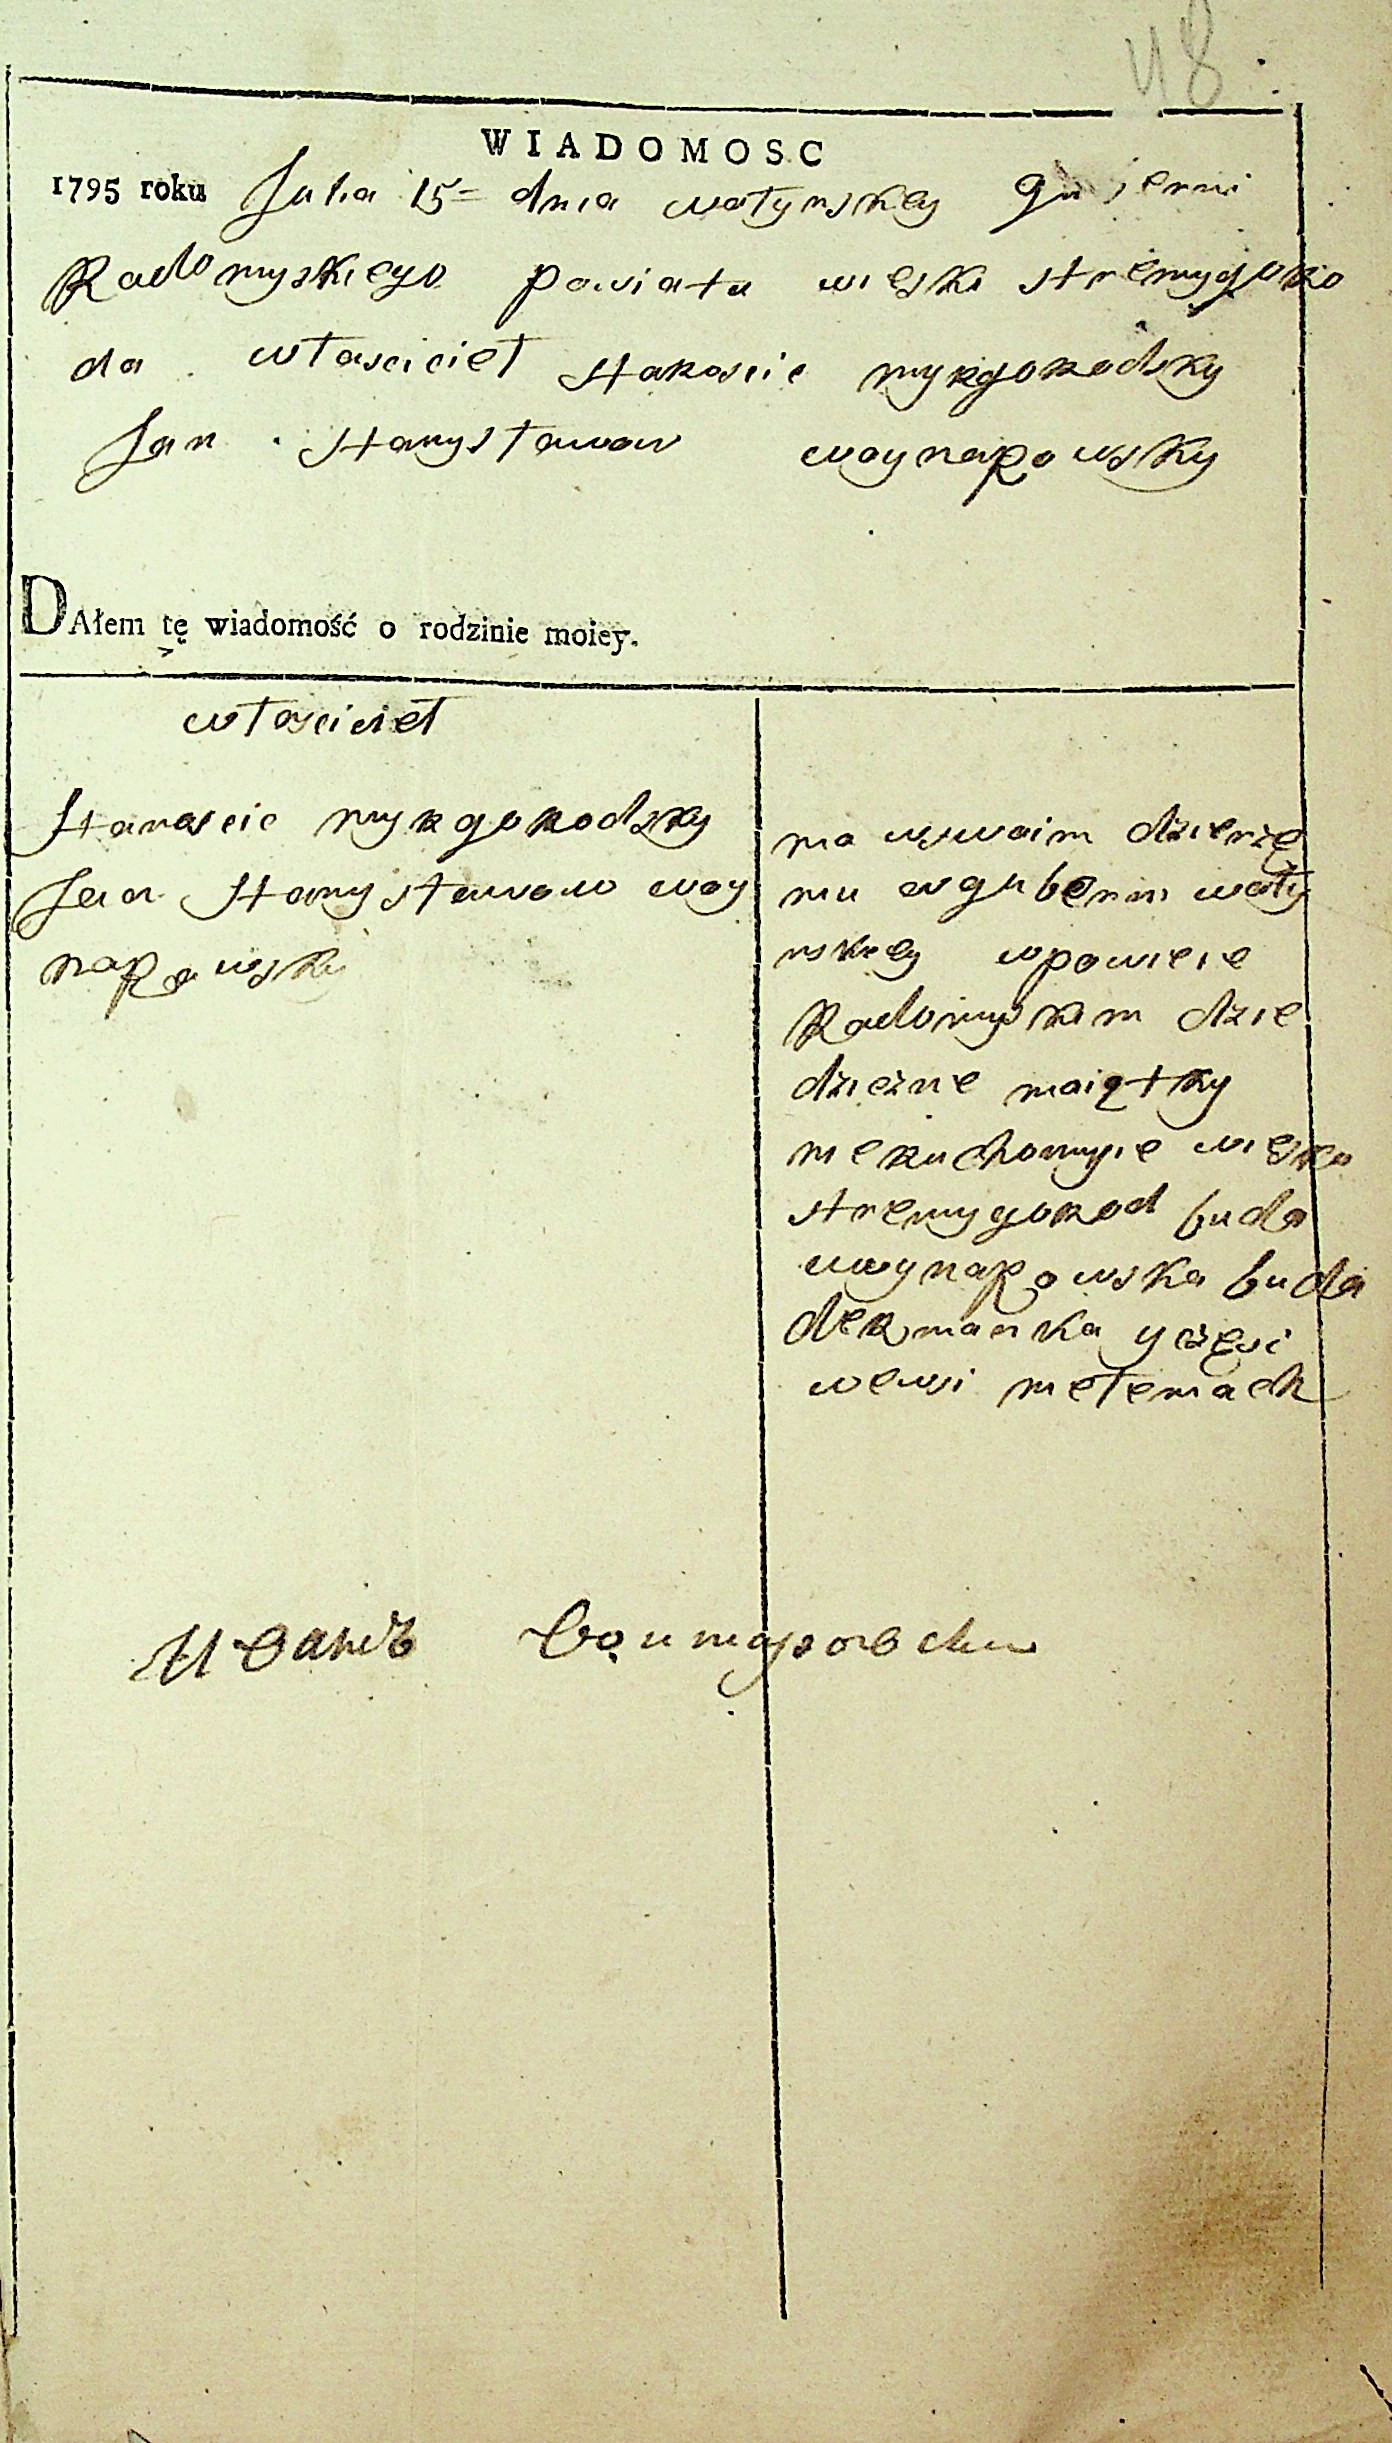 48
WIADOMOSC
1795 roku Julia 15 dnia wołynskey gubernii
Radomyskiego powiatu wieski stremygoro
da własciciel staroscic myrgorodsky
Jan Stanysławow woynarowsky
DAłem tę wiadomość o rodzinie moiey.
własciciel
staroscic myrgorodsky
Jan Stanysławow woy
narowsky
ma wswoim dzierżę
niu w gubernii woły
nskiey wpowiecie
Radomyskim dzie
dziczne maiątky
nieruchomyie wieska
stremygorod buda
woynarowska buda
dermanka y częsci
wewsi
Иванъ Войнаровски